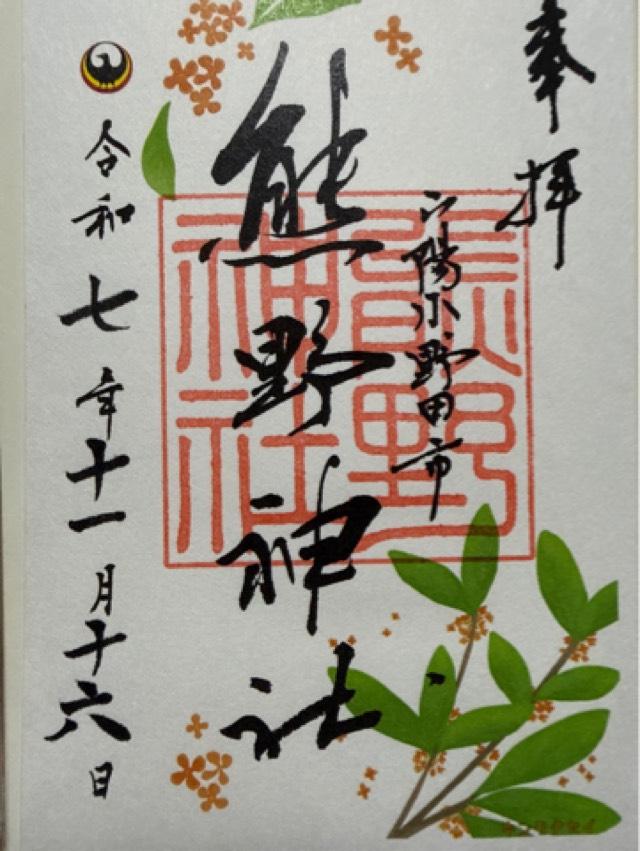 奉拝
山陽小野田市
熊野神社
熊野
神社
令和七年十一月十六日
キンモクセイ